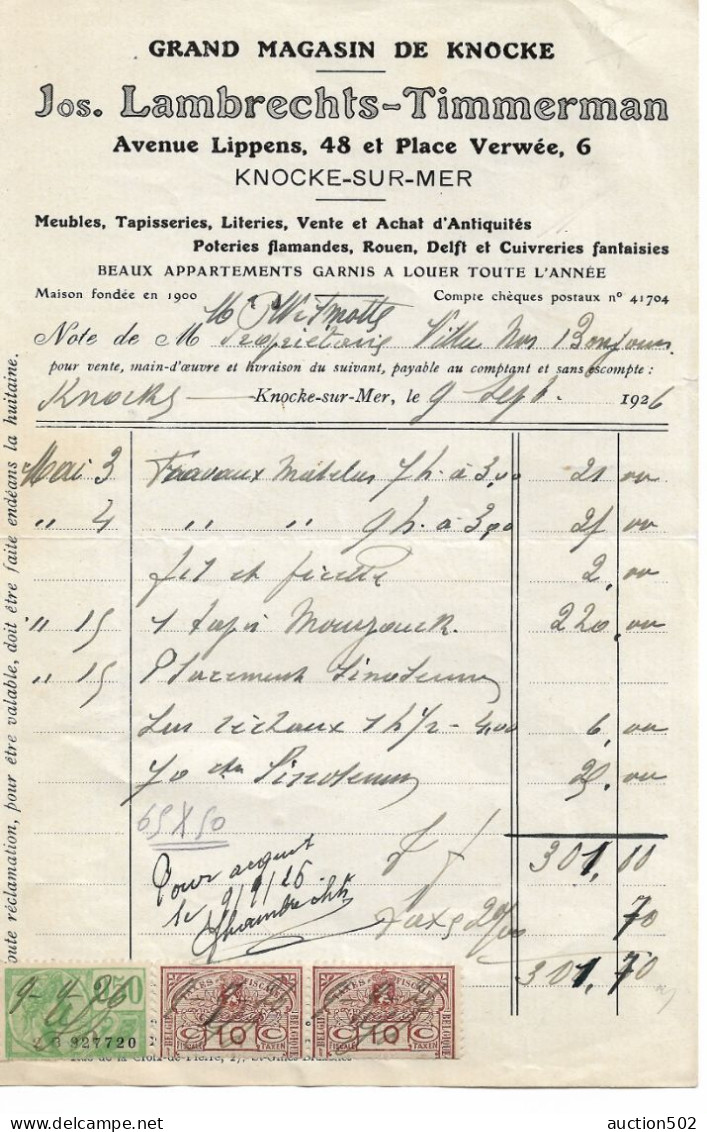 GRAND MAGASIN DE KNOCKE
Jos. Lambrechts-Timmerman
Avenue Lippens, 48 et Place Verwée, 6
KNOCKE-SUR-MER
Meubles, Tapisseries, Literies, Vente et Achat d'Antiquités
Poteries flamandes, Rouen, Delft et Cuivreries fantaisies
BEAUX APPARTEMENTS GARNIS A LOUER TOUTE L'ANNÉE
Maison fondée en 1900 Compte chèques postaux nº 41704
Note de M Propriétaire Villa Mon Bonjour
pour vente, main-d'œuvre et livraison du suivant, payable au comptant et sans escompte :
Knocke Knocke-sur-Mer, le 9 Sept. 1926
Mai 3 Travaux Matelas 7 h. à 3,00 21,00
" 4 " " 9 h. à 3,00 27,00
fil et ficelle 2,00
" 15 1 tapi 220,00
" 15 Placement Linoleum
1 h 1/2 - 4,00 6,00
Linoleum 25,00
65 X 50
301,00
Pour acquit
le 9/9/26
Lambrechts
Taxe 70
301,70
toute réclamation, pour être valable, doit être faite endéans la huitaine.
9-9-26
2.50
827720
TAXES FISCALES
BELGIQUE
C 10 C
FISCALE TAXEN
TAXES FISCALES
BELGIQUE
C 10 C
FISCALE TAXEN
Rue de la Croix-de-Pierre, 17, St-Gilles-Bruxelles
auction502